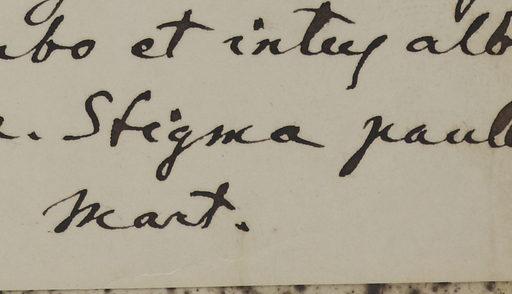 bo et intus alb
. Stigma paull
Mart.